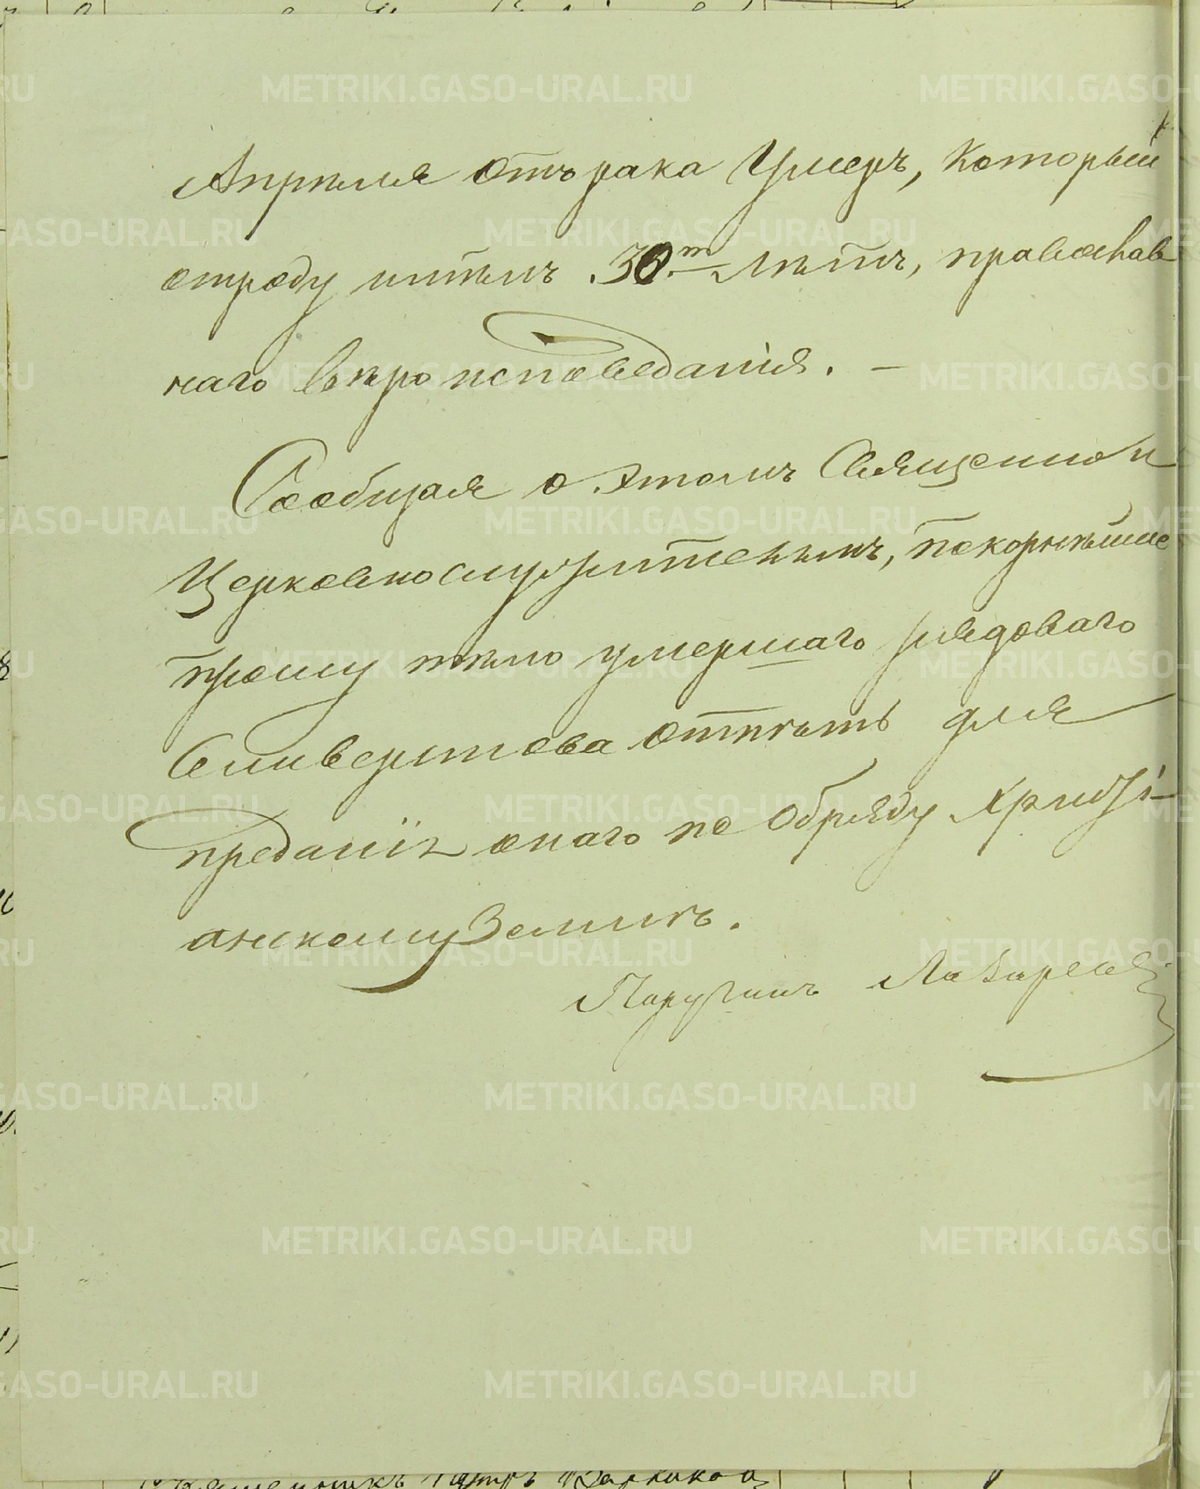 Апрѣля отъ рака Умеръ, который
отроду имѣлъ 30т лѣтъ, православ
наго вѣроисповеданія. —
Сообщая о этомъ Священно и
Церковнослужителямъ, покорнѣйше
прошу тѣло умершаго рядоваго
Селиверстова отпѣть для
преданія онаго по обряду Христі-
анскому Землѣ.
Поручикъ Лазарев